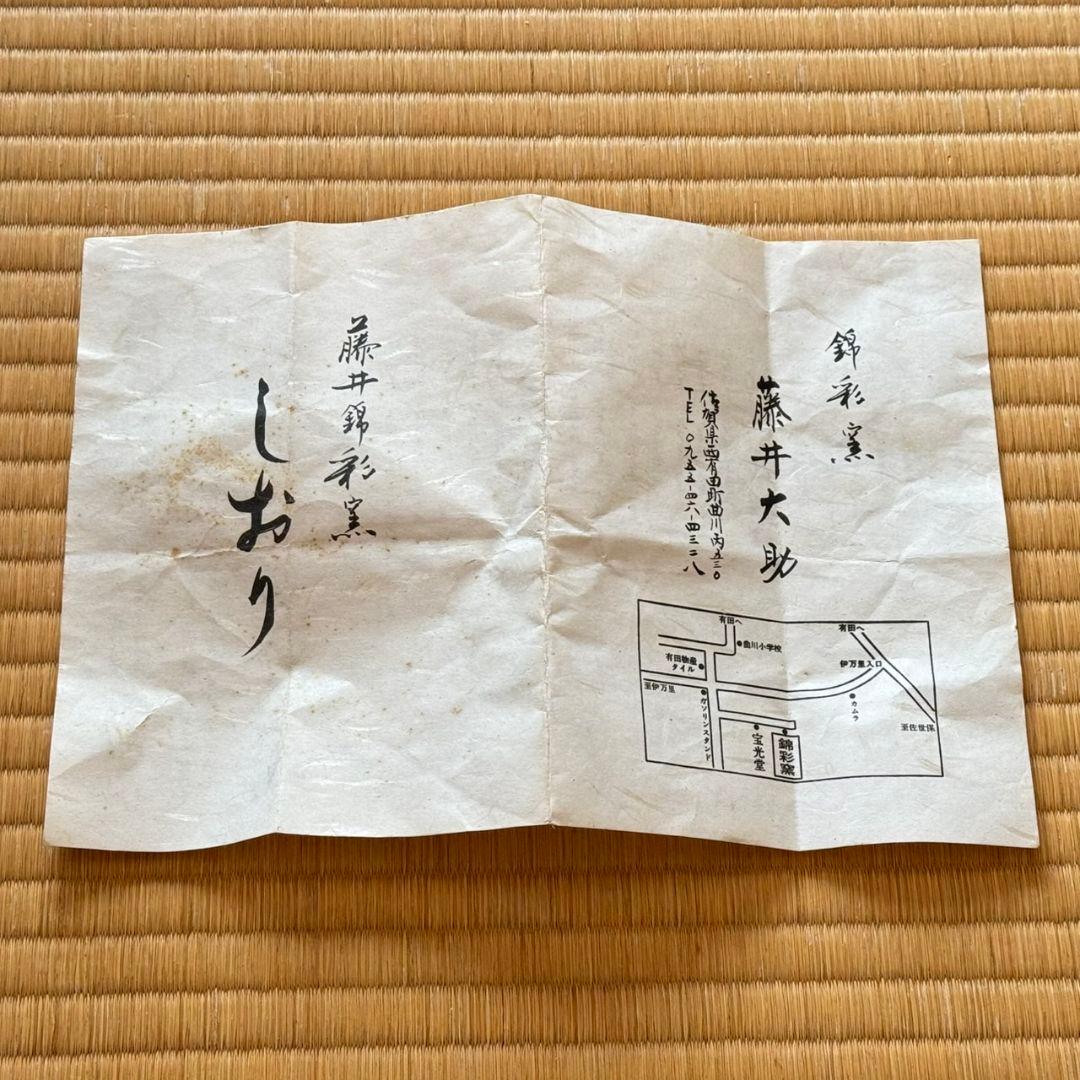 錦彩窯
藤井大助
佐賀県西有田町曲川丙五三〇
TEL 〇九五五-四六-四三二八
有田へ
曲川小学校
有田物産
タイル
至伊万里
ガソリンスタンド
有田へ
伊万里入口
カムラ
至佐世保
宝光堂
錦彩窯
藤井錦彩窯
しおり